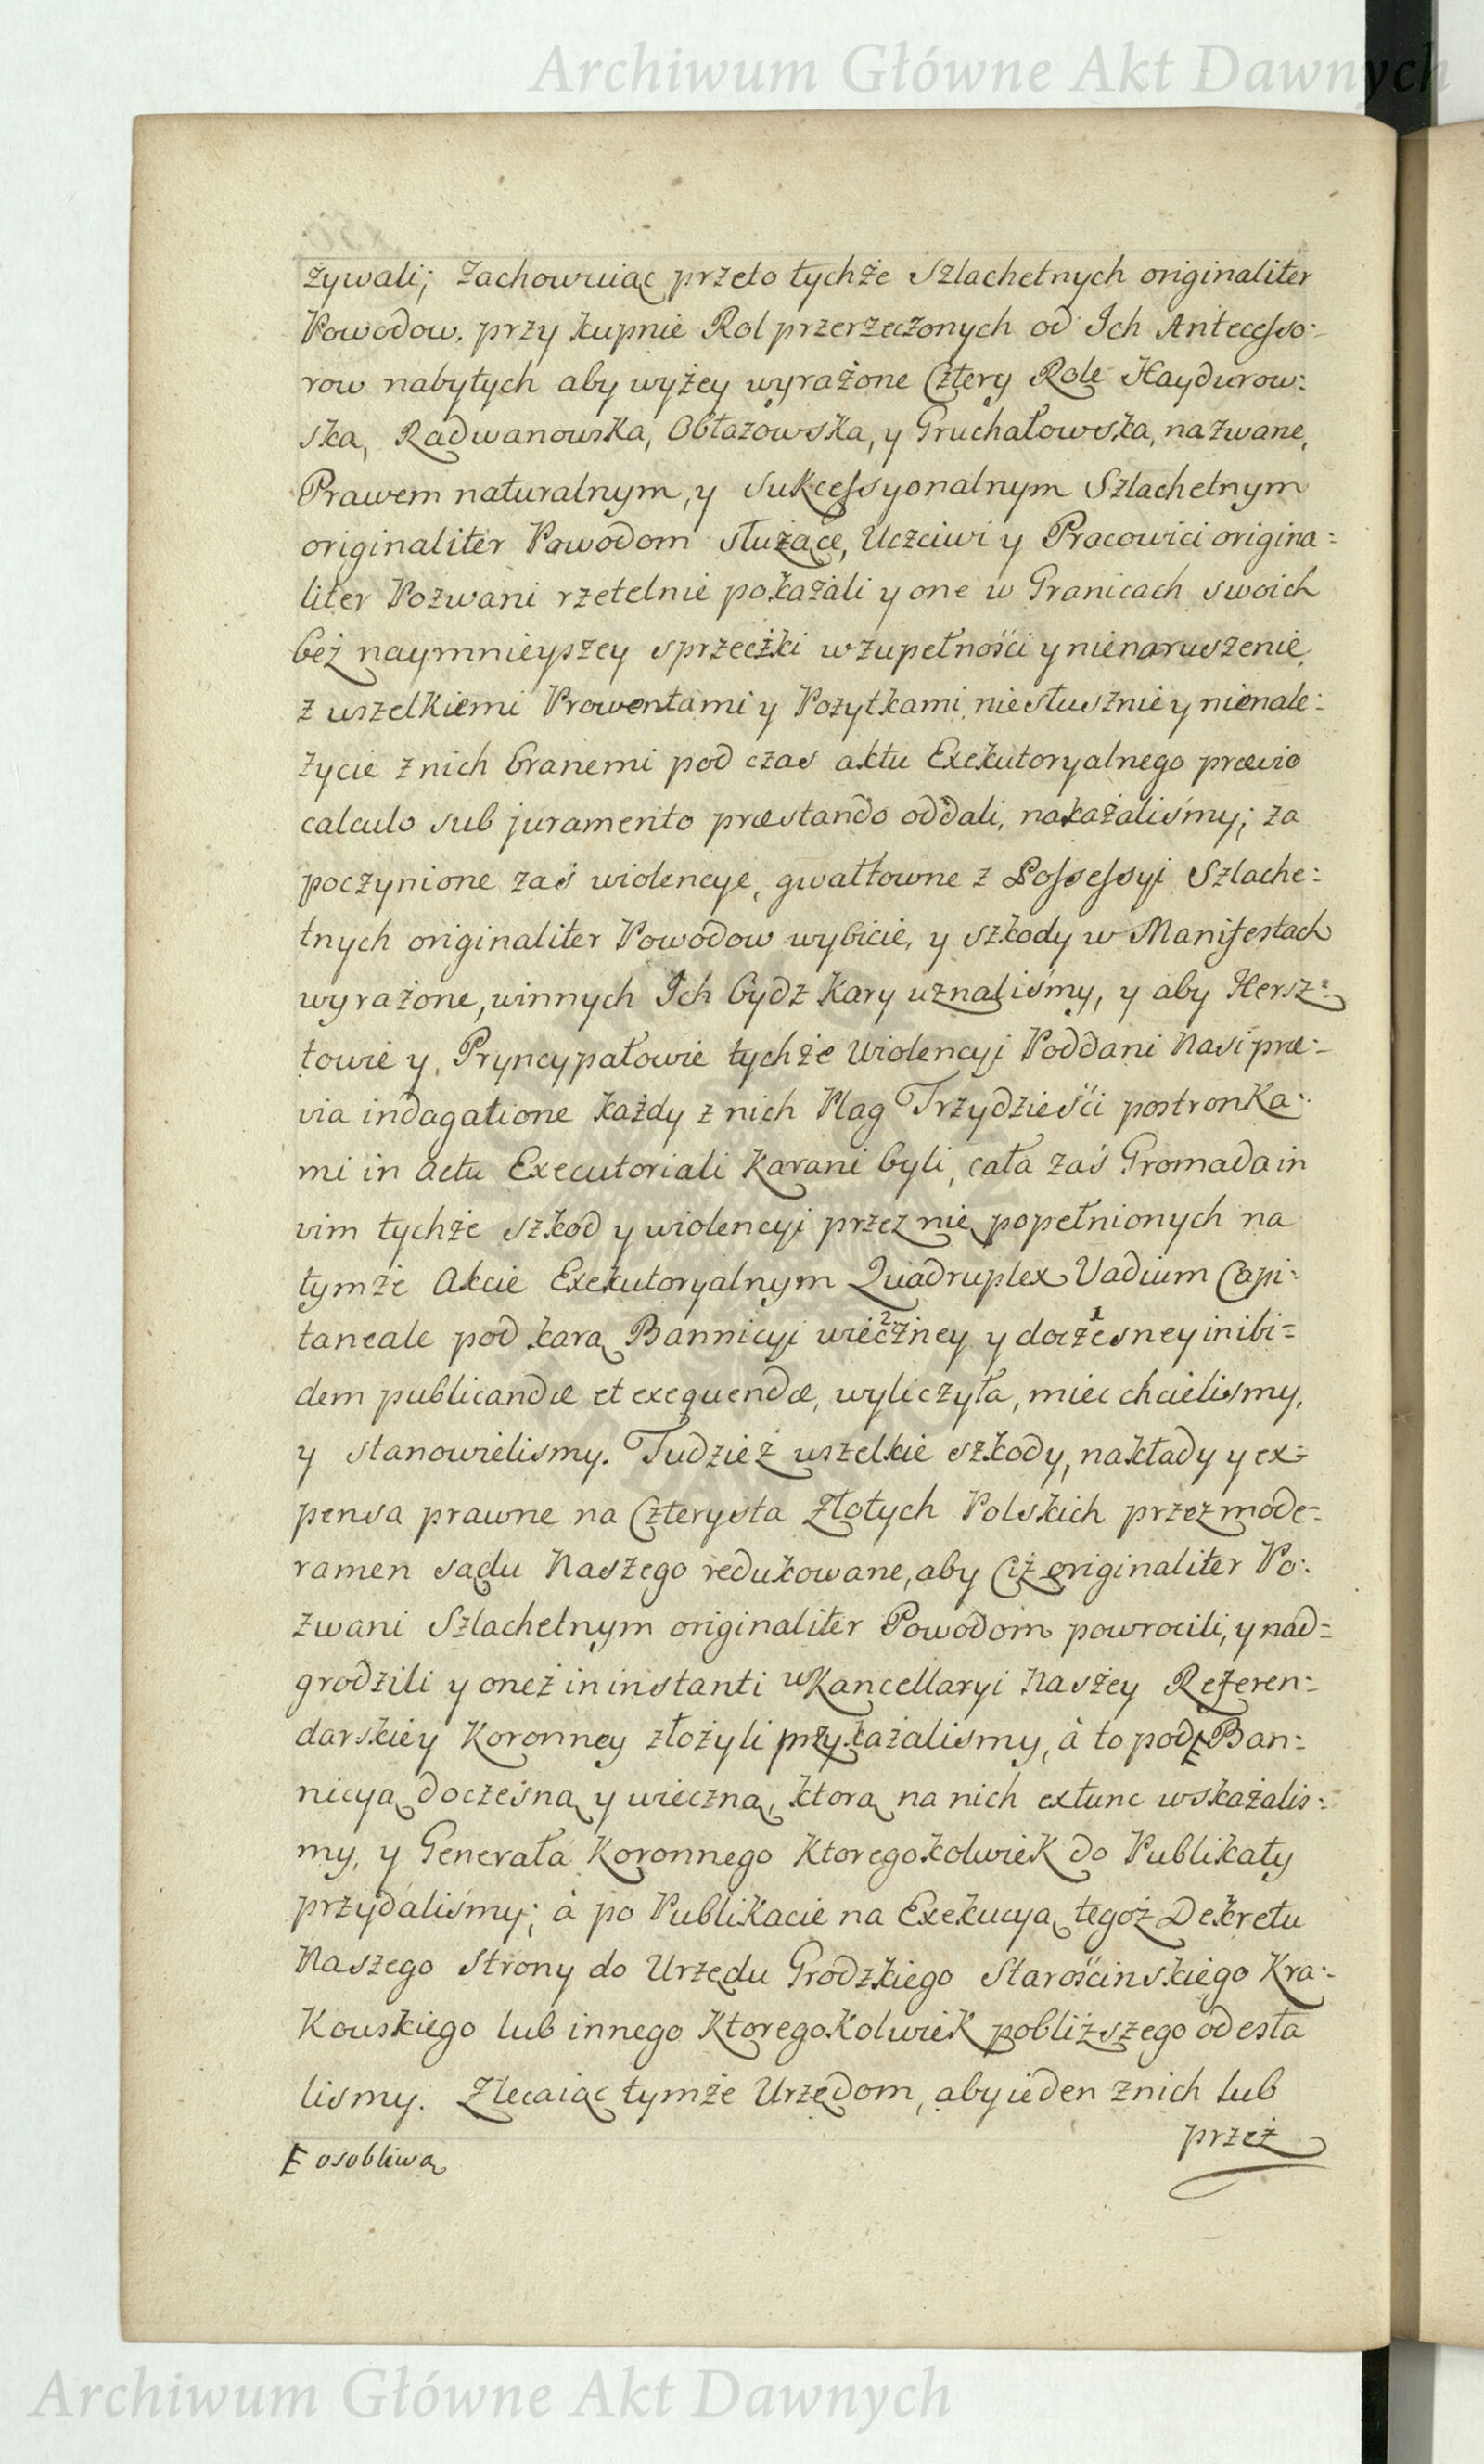 Archiwum Główne Akt Dawnych
żywali; Zachowuiąc przeto tychże Szlachetnych originaliter
Powodow. przy kupnie Rol przerzeczonych od Ich Antecesso:
row nabytych aby wyżey wyrażone Cztery Role Haydurow:
ska, Radwanowska, Obłazowska, y Gruchałowska, nazwane,
Prawem naturalnym, y sukcessyonalnym Szlachetnym
originaliter Powodom służące, Uczciwi y Pracowici origina:
liter Pozwani rzetelnie pokazali y one w Granicach swoich
bez naymnieyszey sprzeczki w zupełności y nienaruszenie
z wszelkiemi Prowentami y Pozytkami niesłusznie y nienale:
życie z nich branemi pod czas aktu Exekutoryalnego prævio
calculo sub juramento præstando oddali, nakazaliśmy; za
poczynione zaś wiolencye, gwałtowne z Possessyi Szlache:
tnych originaliter Powodow wybicie, y szkody w Manifestach
wyrażone, winnych Ich bydz Kary uznaliśmy, y aby Hersz:
towie y Pryncypałowie tychże Wiolencyi Poddani Nasi præ:
via indagatione każdy z nich Plag Trzydzieści postronka:
mi in actu Executoriali Karani byli, cała zaś Gromada in
vim tychże szkod y wiolencyi przez nię popełnionych na
tymże Akcie Exekutoryalnym Quadruplex Vadium Capi:
taneale pod karą Bannicyi wieczney 2 y doczesney 1 inibi=
dem publicandæ et exequendæ, wyliczyła, miec chcielismy,
y stanowielismy. Tudzież wszelkie szkody, nakłady y ex=
pensa prawne na Czterysta Złotych Polskich przez mode=
ramen sądu Naszego redukowane, aby Ciż originaliter Po:
zwani Szlachetnym originaliter Powodom powrocili, y nad=
grodzili y oneż in instanti w Kancellaryi Naszey Referen:
darskiey Koronney złożyli przykazalismy, à to pod Ⱶ Ban:
nicyą doczesną y wieczną, ktorą na nich extunc wskazalis:
my, y Generała Koronnego Ktoregokolwiek do Publikaty
przydaliśmy; à po Publikacie na Exekucyą tegoż Dekretu
Naszego Strony do Urzędu Grodzkiego Starościnskiego Kra:
Kowskiego lub innego Ktoregokolwiek pobliższego odesła
lismy. Zlecaiąc tymże Urzędom, aby ieden z nich lub
przez
Ⱶ osobliwą
Archiwum Główne Akt Dawnych